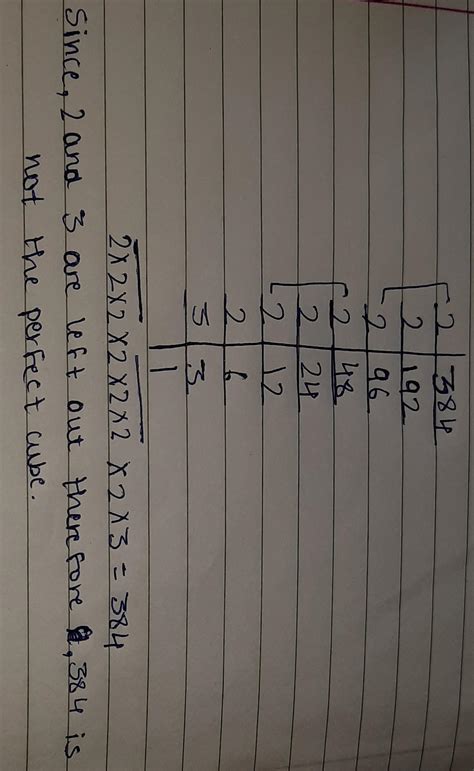 2 | 384
2 | 192
2 | 96
2 | 48
2 | 24
2 | 12
2 | 6
3 | 3
1
2×2×2×2×2×2×2×3 = 384
Since, 2 and 3 are left out therefore, 384 is
not the perfect cube.